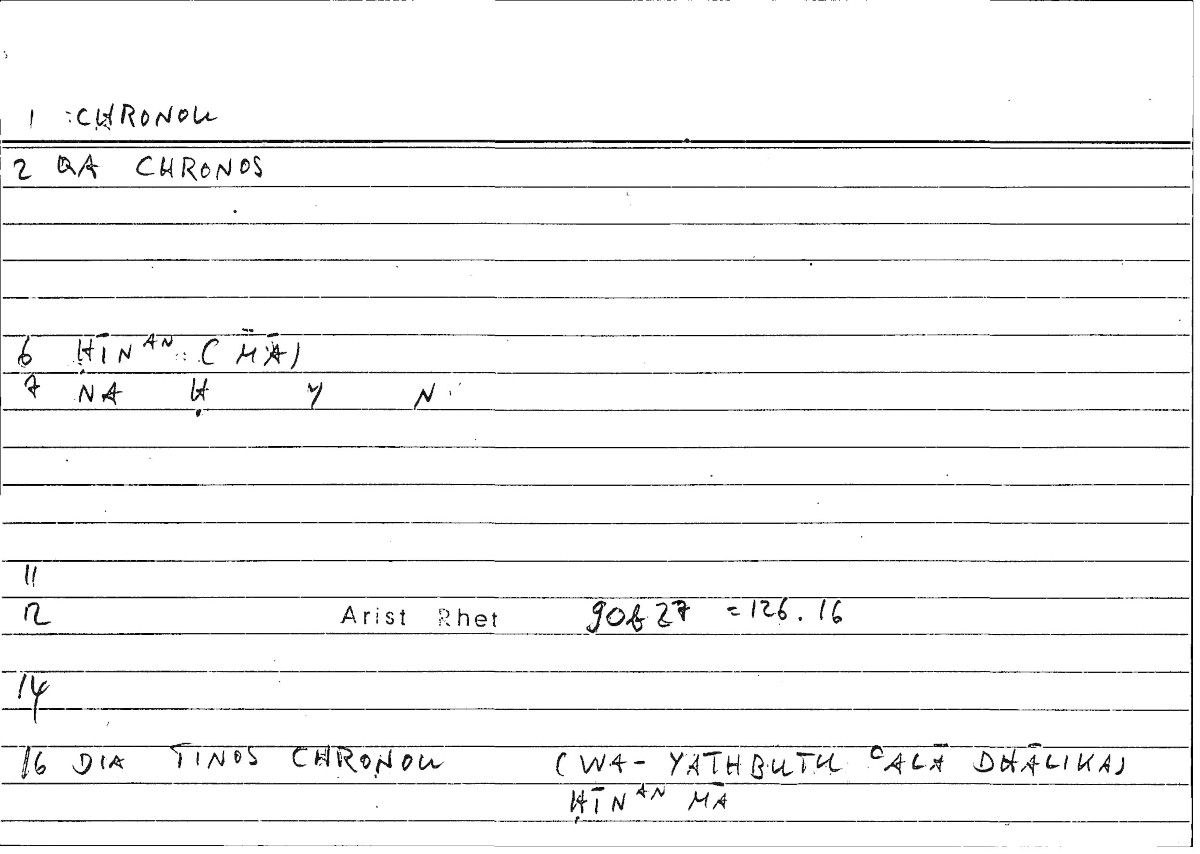 1 :CHRONOU
2 QA CHRONOS
6 ḤĪNᴬᴺ (MĀ)
7 NA Ḥ Y N
11
12 Arist Rhet 90b27 =126.16
14
16 DIA TINOS CHRONOU (WA- YATHBUTU ʿALĀ DHĀLIKA)
ḤĪNᴬᴺ MĀ